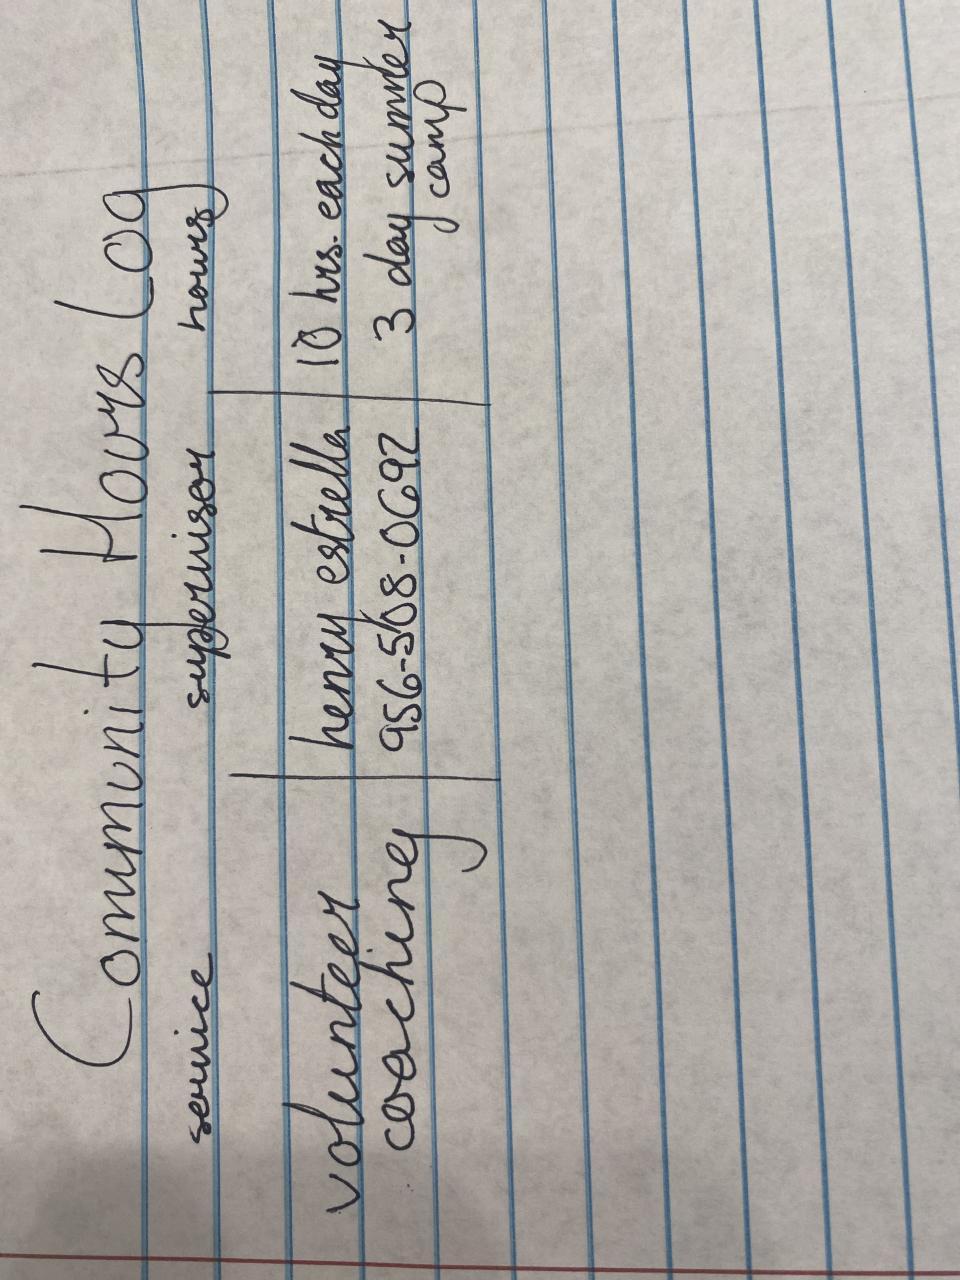 Community Hours Log
service supervisor hours
volunteer henry estrella 10 hrs. each day
coaching 956-508-0692 3 day summer
camp